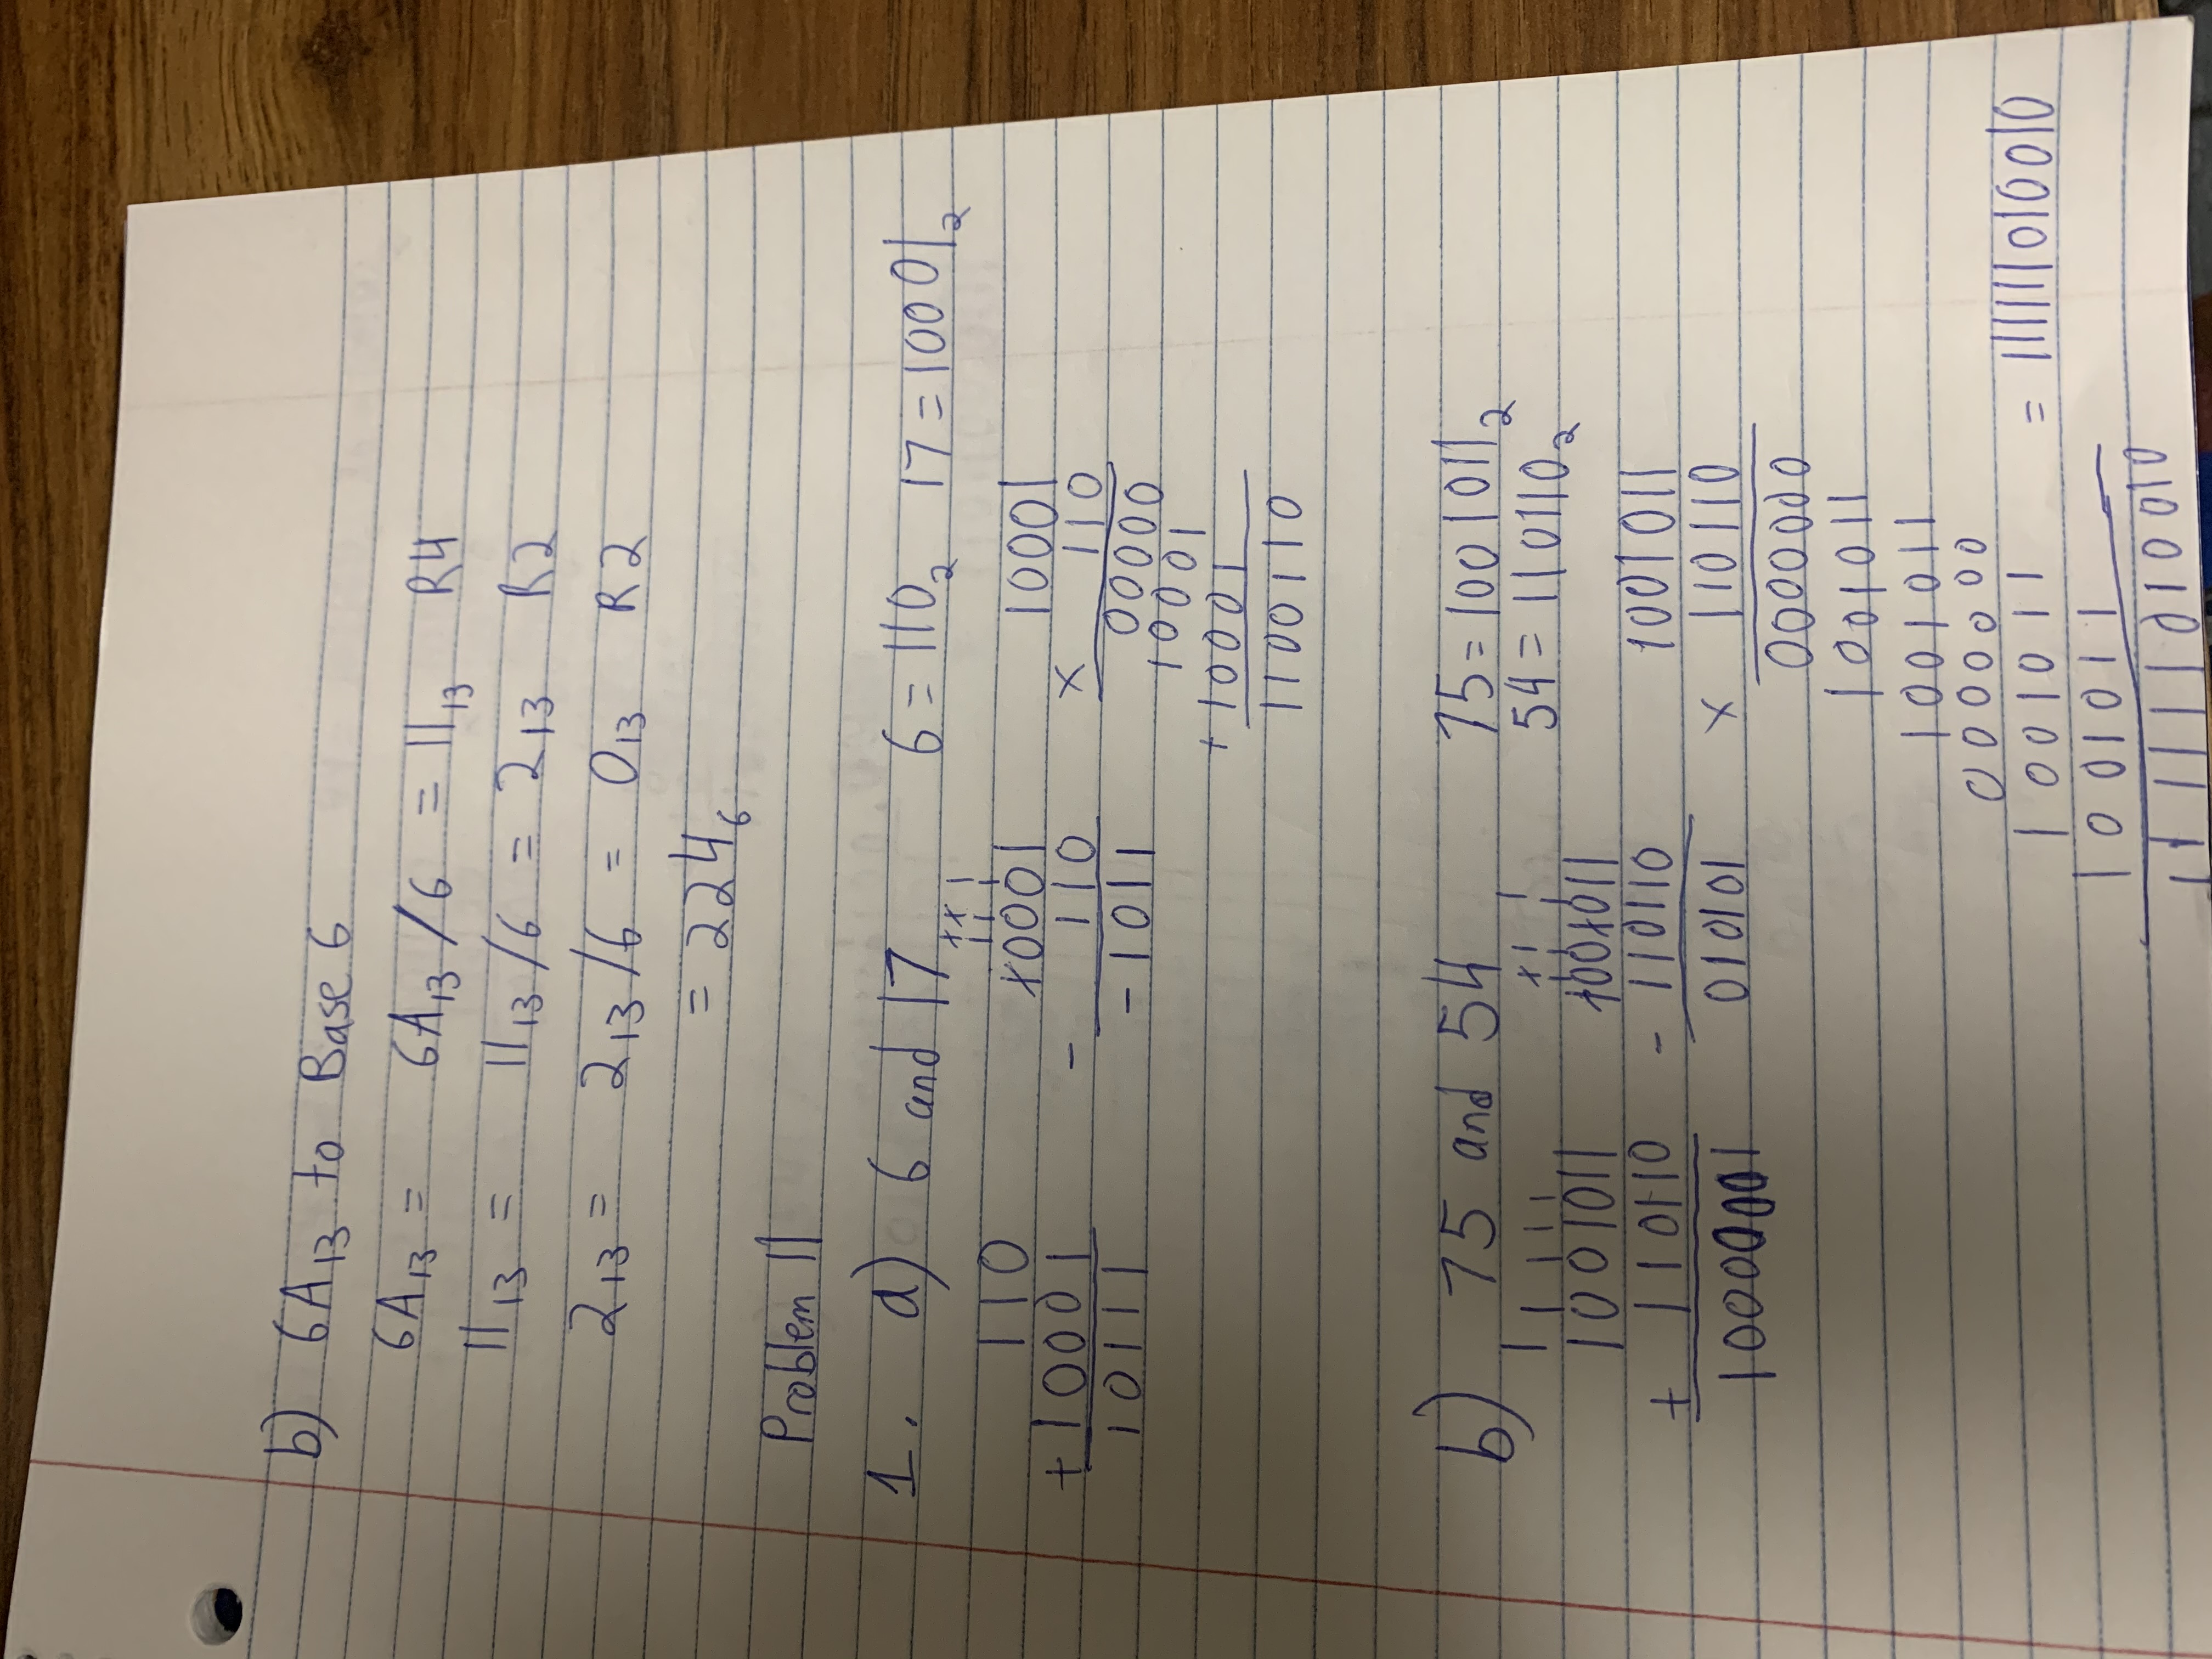 b) 6A₁₃ to Base 6
6A₁₃ = 6A₁₃/6 = 11₁₃ R4
11₁₃ = 11₁₃/6 = 2₁₃ R2
2₁₃ = 2₁₃/6 = 0₁₃ R2
= 224₆
Problem 11
1. a) 6 and 17 6 = 110₂ 17 = 10001₂
1 1 1
1 1 1
110 10001 10001
+ 10001 - 110 x 110
10111 -1011 00000
10001
+ 10001
1100110
b) 75 and 54 75 = 1001011₂
54 = 110110₂
1 1 1 1 1 1 1 1
1 1 1
1001011 1001011 1001011
+ 110110 - 110110 x 110110
10000001 010101 0000000
1001011
1001011
0000000
1001011 = 111111010010
1001011
111111010010